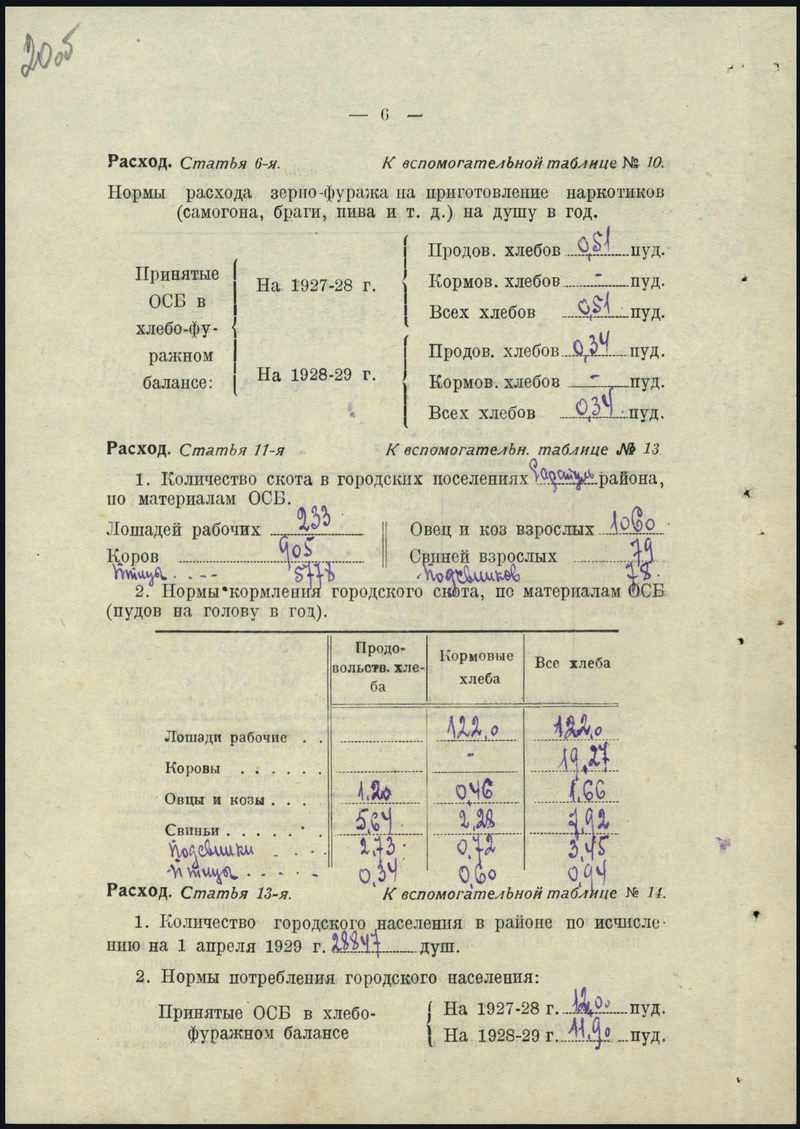 — 6 —
Расход. Статья 6-я. К вспомогательной таблице № 10.
Нормы расхода зерно-фуража на приготовление наркотиков
(самогона, браги, пива и т. д.) на душу в год.
Принятые ОСБ в хлебо-фу-ражном балансе:
На 1927-28 г.
Продов. хлебов 0,51 пуд.
Кормов. хлебов - пуд.
Всех хлебов 0,51 пуд.
На 1928-29 г.
Продов. хлебов 0,34 пуд.
Кормов. хлебов - пуд.
Всех хлебов 0,34 пуд.
Расход. Статья 11-я К вспомогательн. таблице № 13
1. Количество скота в городских поселениях района,
по материалам ОСБ.
Лошадей рабочих 233 Овец и коз взрослых 1060
Коров 905 Свиней взрослых 79
Птицы 5778 Подсвинков 78
2. Нормы кормления городского скота, по материалам ОСБ
(пудов на голову в год).
Продо-вольств. хле-ба Кормовые хлеба Все хлеба
Лошади рабочие . . 122,0 122,0
Коровы . . . . . . - 19,27
Овцы и козы . . . 1,20 0,46 1,66
Свиньи . . . . . . . 5,64 2,28 7,92
Подсвинки . . . . 2,73 0,72 3,45
Птицы . . . . . 0,34 0,60 0,94
Расход. Статья 13-я. К вспомогательной таблице № 14.
1. Количество городского населения в районе по исчисле-
нию на 1 апреля 1929 г. 28847 душ.
2. Нормы потребления городского населения:
Принятые ОСБ в хлебо-фуражном балансе
На 1927-28 г. 12,00 пуд.
На 1928-29 г. 11,90 пуд.